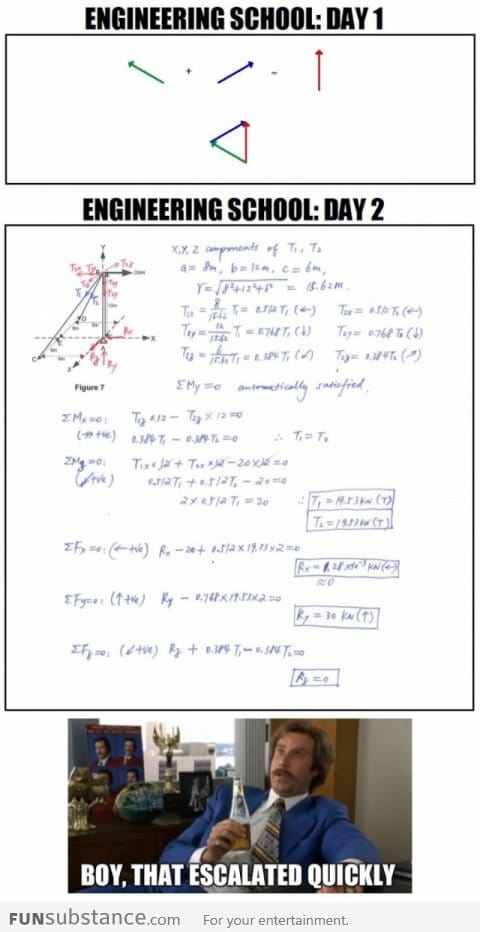 ENGINEERING SCHOOL: DAY 1
+ =
ENGINEERING SCHOOL: DAY 2
X,Y, Z components of T₁, T₂
a= 8m, b=12m, c=6m,
r=√8²+12²+6² = 15.62m.
T₁ₓ = 8/15.62 T₁ = 0.512 T₁ (←) T₂ₓ = 0.512 T₂ (←)
T₁y = 12/15.62 T₁ = 0.768 T₁ (↓) T₂y = 0.768 T₂ (↓)
T₁z = 6/15.62 T₁ = 0.384 T₁ (↙) T₂z = 0.384 T₂ (↗)
Figure 7
ΣMy=0 automatically satisfied.
ΣMx=0: T₁z ×12 − T₂z ×12=0
(+ve) 0.384 T₁ − 0.384 T₂=0 ∴ T₁=T₂
ΣMz=0: T₁ₓ×12 + T₂ₓ×12−20×12=0
(+ve) 0.512T₁ + 0.512T₂ − 20=0
2×0.512 T₁ = 20 ∴ T₁ = 19.53 kN (T)
T₂ = 19.53 kN (T)
ΣFx=0: (← +ve) Rx − 20 + 0.512×19.53×2=0
Rx = 1.28×10⁻³ kN (←)
≈0
ΣFy=0: (↑ +ve) Ry − 0.768×19.53×2=0
Ry = 30 kN (↑)
ΣFz=0: (↙ +ve) Rz + 0.384 T₁ − 0.384 T₂=0
Rz =0
BOY, THAT ESCALATED QUICKLY
FUNsubstance.com For your entertainment.